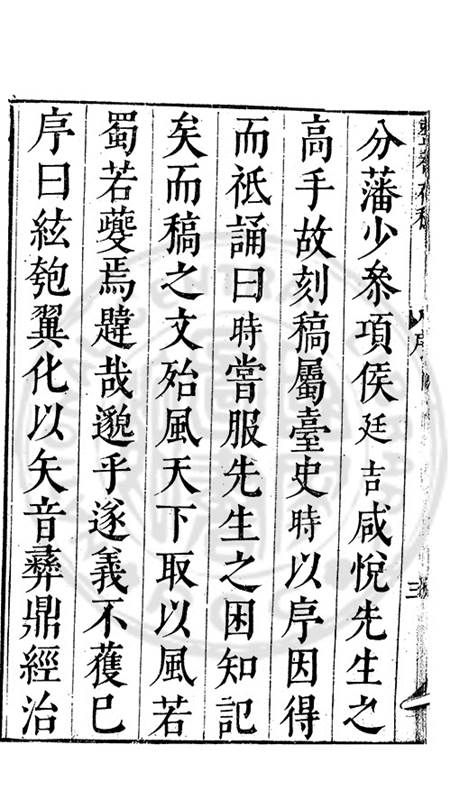 整菴存稿
序
三
分藩少叅項侯廷吉咸悅先生之
高手故刻稿屬臺史時以序因得
而祇誦曰時嘗服先生之困知記
矣而稿之文殆風天下取以風若
蜀若夔焉韙哉邈乎遂義不獲已
序曰絃匏翼化以矢音彝鼎經治